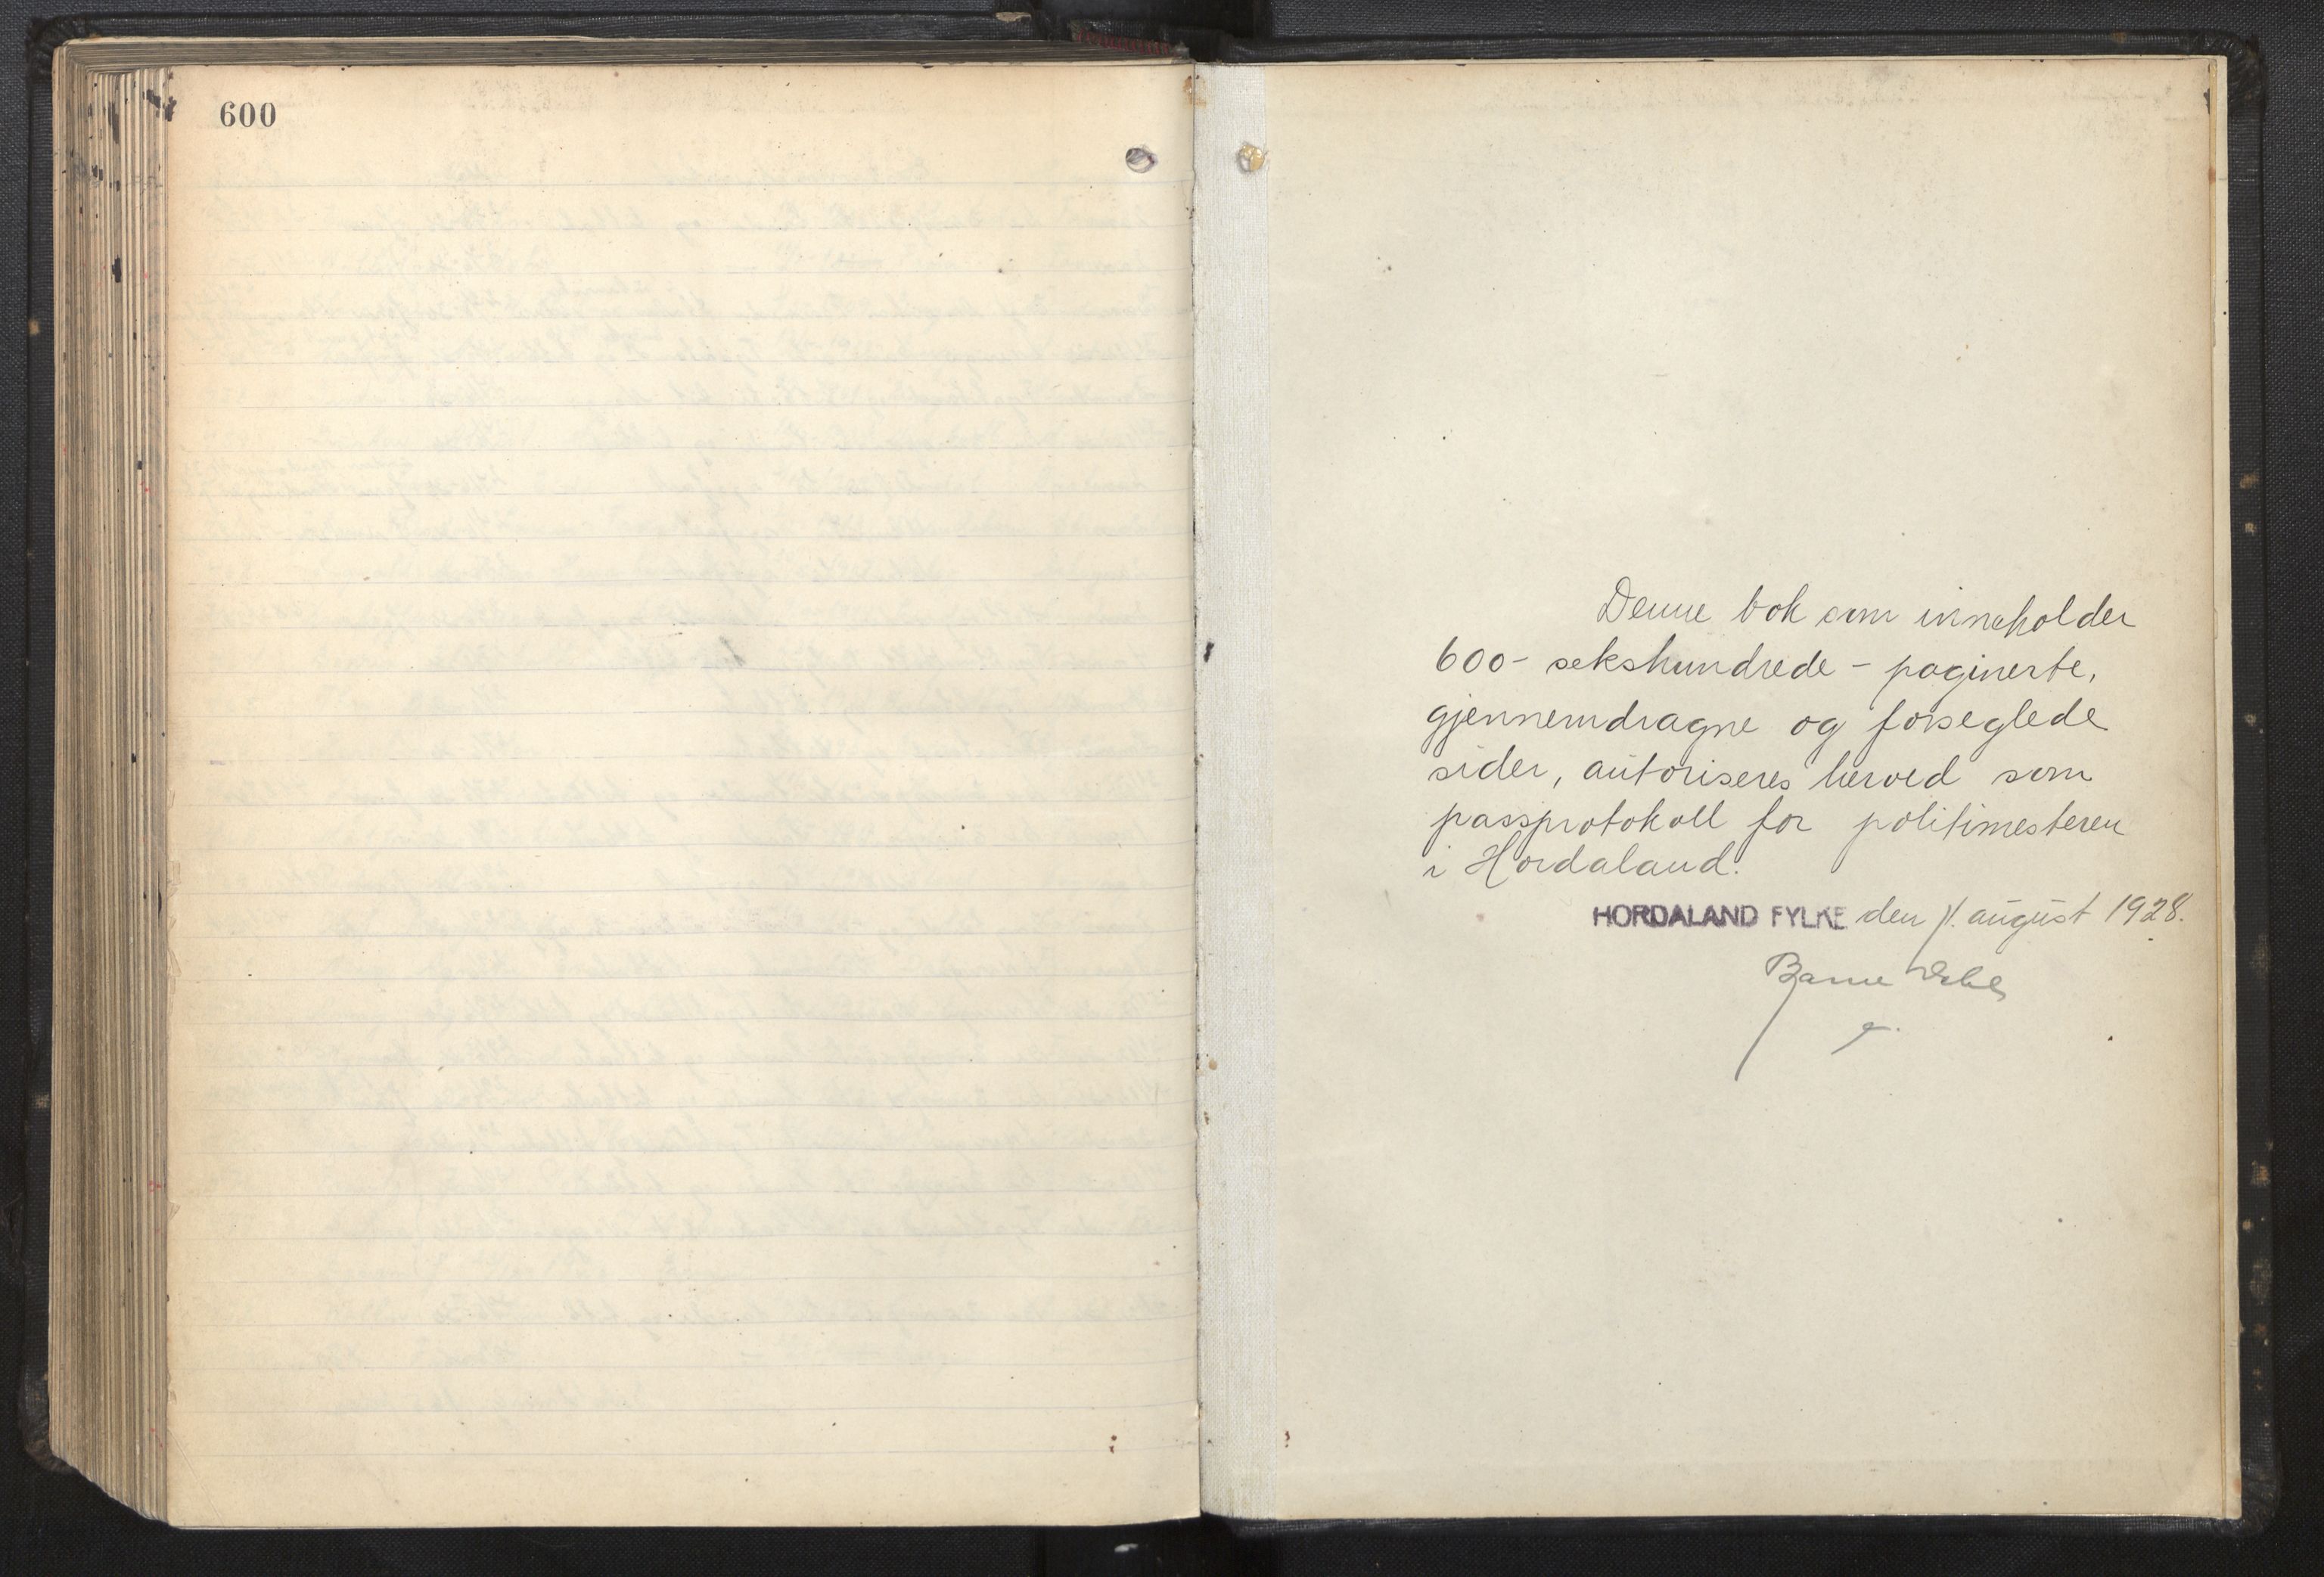 600
Denne bok som inneholder
600 - sekshundrede - paginerte,
gjennemdragne og forseglede
sider, autoriseres herved som
passprotokoll for politimesteren
i Hordaland.
HORDALAND FYLKE den august 1928.